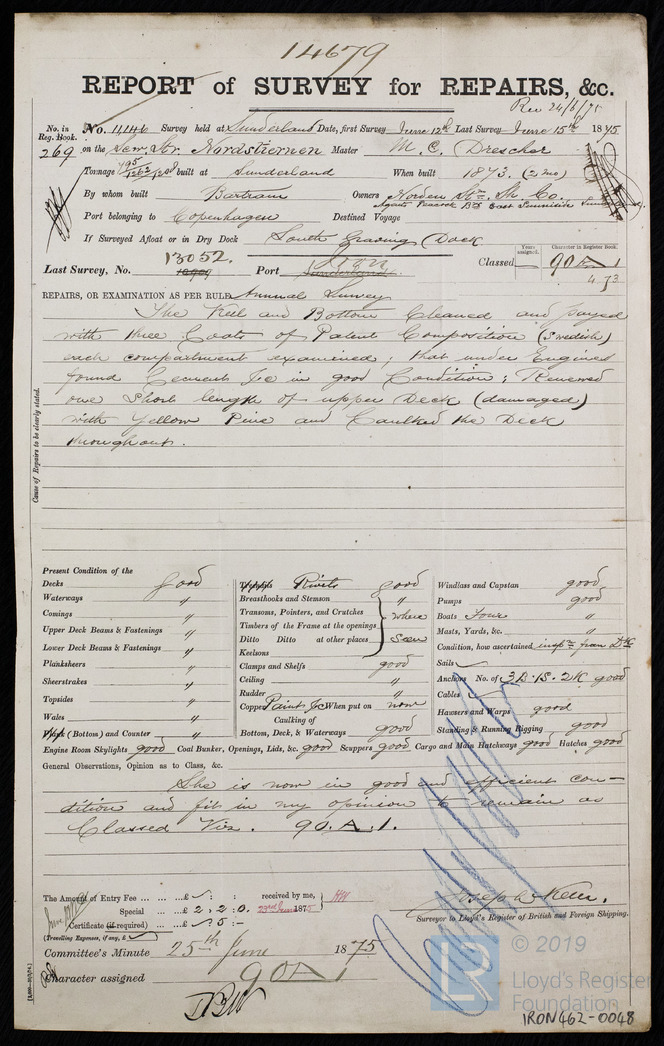 14679
REPORT of SURVEY for REPAIRS, &c.
Rec 24/6/75
No. in Reg. Book.
No. 4446 Survey held at Sunderland Date, first Survey June 12th Last Survey June 15th 1875
269 on the Scw. Str. Nordstiernen Master M. C. Drescher
Tonnage built at Sunderland When built 1873. (2 mo)
By whom built Bartram Owners Norden Stm. Sh. Co.
Agents Peacock Bros East Sunniside
Port belonging to Copenhagen Destined Voyage
If Surveyed Afloat or in Dry Dock South Graving Dock
Years assigned. Character in Register Book.
Last Survey, No. 13052. Port Iron Sunderland Classed 90A1
4.73
REPAIRS, OR EXAMINATION AS PER RULE, Annual Survey
The Keel and Bottom Cleaned and payed
with three Coats of Patent Composition (Swedish)
each compartment examined; that under Engines
found Cement &c in good Condition; Renewed
one Short length of upper Deck (damaged)
with Yellow Pine and Caulked the Deck
throughout.
Cause of Repairs to be clearly stated.
Present Condition of the
Decks good
Waterways "
Comings "
Upper Deck Beams & Fastenings "
Lower Deck Beams & Fastenings "
Planksheers "
Sheerstrakes "
Topsides "
Wales "
(Bottom) and Counter "
Rivets good
Breasthooks and Stemson "
Transoms, Pointers, and Crutches where
Timbers of the Frame at the openings
Ditto Ditto at other places Seen
Keelsons
Clamps and Shelfs good
Ceiling "
Rudder "
Copper Paint &c When put on now
Caulking of
Bottom, Deck, & Waterways good
Windlass and Capstan good
Pumps good
Boats Four "
Masts, Yards, &c. "
Condition, how ascertained inspn from Dk
Sails ✓
Anchors No. of 3B.1S.2K good
Cables ✓
Hawsers and Warps good
Standing & Running Rigging good
Engine Room Skylights good Coal Bunker, Openings, Lids, &c. good Scuppers good Cargo and Main Hatchways good Hatches good
General Observations, Opinion as to Class, &c.
She is now in good and efficient con-
dition and fit in my opinion to remain as
Classed Viz. 90.A.1.
The Amount of Entry Fee ... £ ✓ : : received by me,
Special ... £ 2 . 2 : 0. 23rd June 1875
Certificate (if required) ... £ ✓ : 5 : -
(Travelling Expenses, if any, £ ✓)
Joseph Keen.
Surveyor to Lloyd's Register of British and Foreign Shipping.
Committee's Minute 25th June 1875
Character assigned 90A1
© 2019
Lloyd's Register
Foundation
IRON462-0048